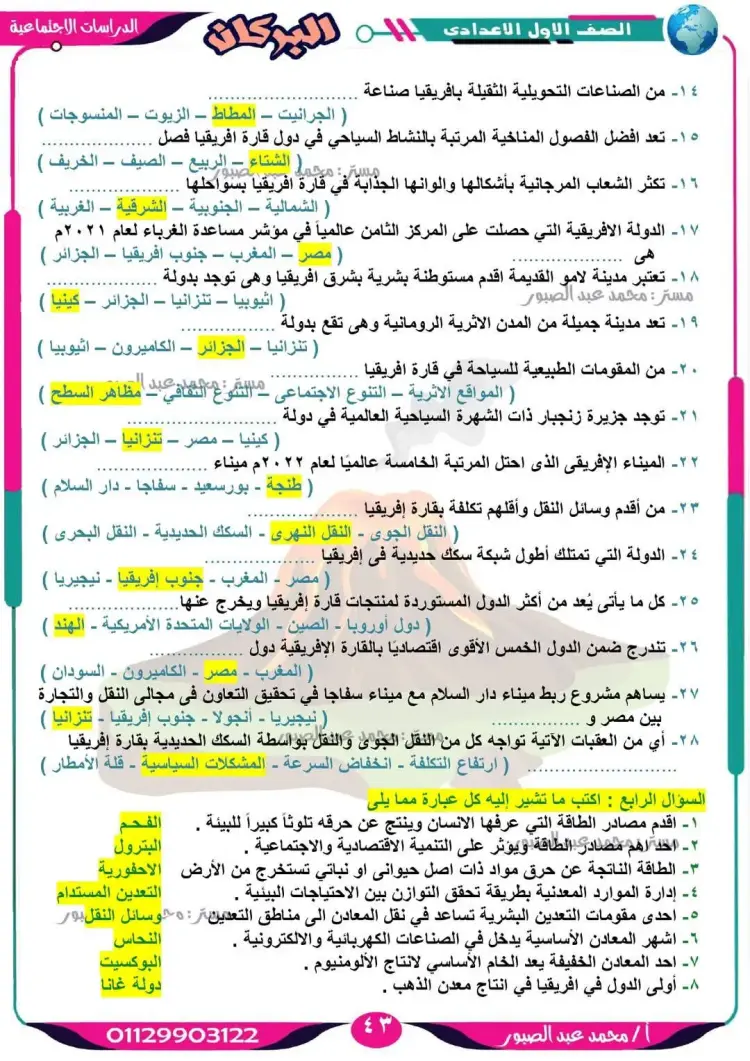 الصف الاول الاعدادى
البركان
الدراسات الاجتماعية
١٤- من الصناعات التحويلية الثقيلة بافريقيا صناعة ..........................
( الجرانيت – المطاط – الزيوت – المنسوجات )
١٥- تعد افضل الفصول المناخية المرتبة بالنشاط السياحي في دول قارة افريقيا فصل ....................
( الشتاء – الربيع – الصيف – الخريف )
١٦- تكثر الشعاب المرجانية بأشكالها والوانها الجذابة في قارة افريقيا بسواحلها ....................
( الشمالية – الجنوبية – الشرقية – الغربية )
١٧- الدولة الافريقية التي حصلت على المركز الثامن عالمياً في مؤشر مساعدة الغرباء لعام ٢٠٢١م
هى ....................
( مصر – المغرب – جنوب افريقيا – الجزائر )
١٨- تعتبر مدينة لامو القديمة اقدم مستوطنة بشرية بشرق افريقيا وهى توجد بدولة ....................
( اثيوبيا – تنزانيا – الجزائر – كينيا )
١٩- تعد مدينة جميلة من المدن الاثرية الرومانية وهى تقع بدولة .................
( تنزانيا – الجزائر – الكاميرون – اثيوبيا )
٢٠- من المقومات الطبيعية للسياحة في قارة افريقيا .....................
( المواقع الاثرية – التنوع الاجتماعى – التنوع الثقافي – مظاهر السطح )
٢١- توجد جزيرة زنجبار ذات الشهرة السياحية العالمية في دولة .....................
( كينيا – مصر – تنزانيا – الجزائر )
٢٢- الميناء الإفريقى الذى احتل المرتبة الخامسة عالميًا لعام ٢٠٢٢م ميناء ....................
( طنجة - بورسعيد - سفاجا - دار السلام )
٢٣- من أقدم وسائل النقل وأقلهم تكلفة بقارة إفريقيا ....................
( النقل الجوى - النقل النهرى - السكك الحديدية - النقل البحرى )
٢٤- الدولة التي تمتلك أطول شبكة سكك حديدية فى إفريقيا .........................
( مصر - المغرب - جنوب إفريقيا - نيجيريا )
٢٥- كل ما يأتى يُعد من أكثر الدول المستوردة لمنتجات قارة إفريقيا ويخرج عنها....................
( دول أوروبا - الصين - الولايات المتحدة الأمريكية - الهند )
٢٦- تندرج ضمن الدول الخمس الأقوى اقتصاديًا بالقارة الإفريقية دول .................
( المغرب - مصر - الكاميرون - السودان )
٢٧- يساهم مشروع ربط ميناء دار السلام مع ميناء سفاجا في تحقيق التعاون فى مجالى النقل والتجارة
بين مصر و ................
( نيجيريا - أنجولا - جنوب إفريقيا - تنزانيا )
٢٨- أي من العقبات الآتية تواجه كل من النقل الجوى والنقل بواسطة السكك الحديدية بقارة إفريقيا
...........................
( ارتفاع التكلفة - انخفاض السرعة - المشكلات السياسية - قلة الأمطار )
السؤال الرابع : اكتب ما تشير إليه كل عبارة مما يلى
١- اقدم مصادر الطاقة التي عرفها الانسان وينتج عن حرقه تلوثاً كبيراً للبيئة . الفحم
٢- احد اهم مصادر الطاقة ويوثر على التنمية الاقتصادية والاجتماعية . البترول
٣- الطاقة الناتجة عن حرق مواد ذات اصل حيوانى او نباتي تستخرج من الأرض الاحفورية
٤- إدارة الموارد المعدنية بطريقة تحقق التوازن بين الاحتياجات البيئية . التعدين المستدام
٥- احدى مقومات التعدين البشرية تساعد في نقل المعادن الى مناطق التعدين وسائل النقل
٦- اشهر المعادن الأساسية يدخل في الصناعات الكهربائية والالكترونية . النحاس
٧- احد المعادن الخفيفة يعد الخام الأساسي لانتاج الألومنيوم . البوكسيت
٨- أولى الدول في افريقيا في انتاج معدن الذهب . دولة غانا
أ / محمد عبد الصبور
٤٣
01129903122